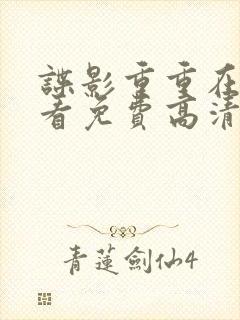 諜影重重在
看免費高清
青蓮劍仙4